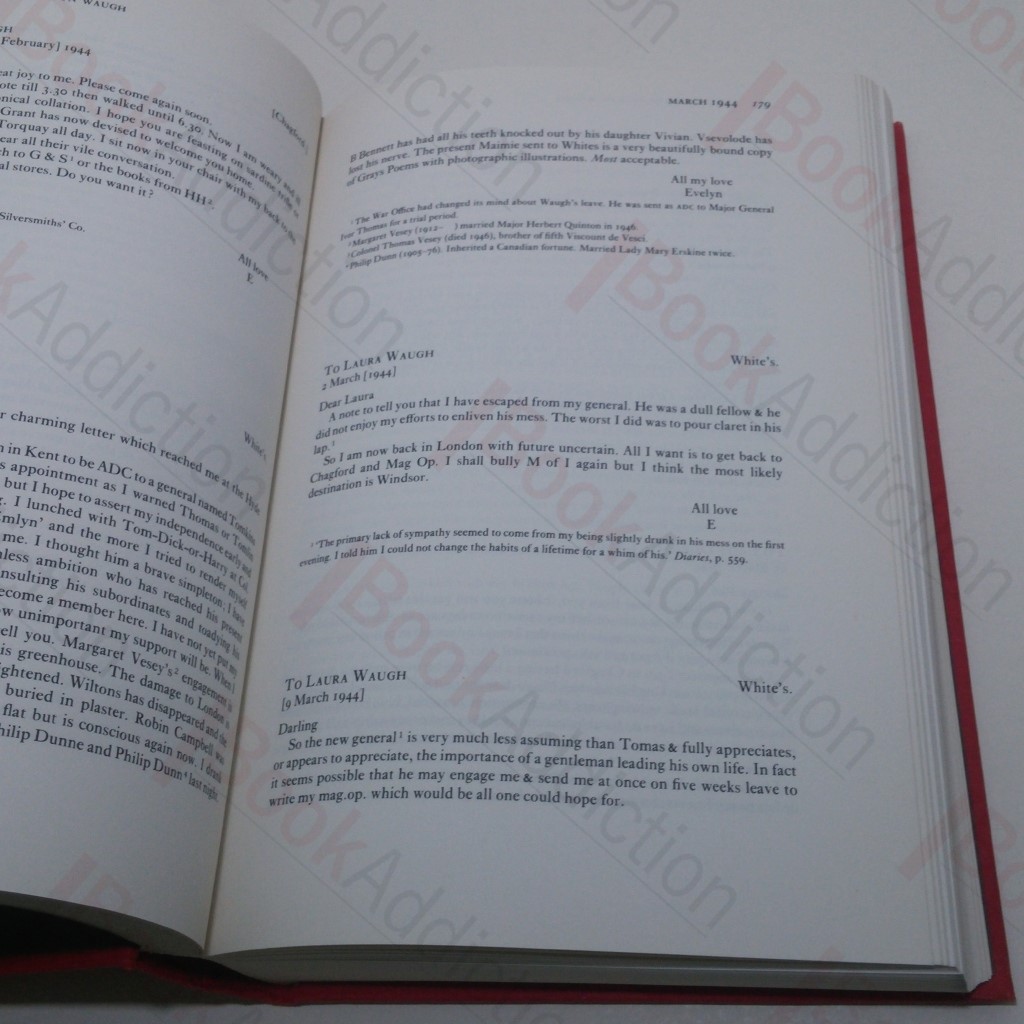 WAUGH
February] 1944
eat joy to me. Please come again soon.
ote till 3.30 then walked until 6.30. Now I am weary and
onical collation. I hope you are feasting on sardine
Grant has now devised to welcome you home.
Torquay all day. I sit now in your chair with my back to
ear all their vile conversation.
ch to G & S¹ or the books from HH².
al stores. Do you want it?
[Chagford]
Silversmiths' Co.
All love
E
White's
r charming letter which reached me at the Hyde
n in Kent to be ADC to a general named Tomkins
s appointment as I warned Thomas or Tomlin
but I hope to assert my independence early and
g. I lunched with Tom-Dick-or-Harry at
mlyn' and the more I tried to render myself
me. I thought him a brave simpleton; I have
nless ambition who has reached his present
nsulting his subordinates and toadying his
ecome a member here. I have not yet put my
ow unimportant my support will be. When I
ell you. Margaret Vesey's² engagement is
is greenhouse. The damage to London is
ightened. Wiltons has disappeared and the
buried in plaster. Robin Campbell was
flat but is conscious again now. I drank
hilip Dunne and Philip Dunn⁴ last night.
MARCH 1944 179
B Bennett has had all his teeth knocked out by his daughter Vivian. Vsevolode has
lost his nerve. The present Maimie sent to Whites is a very beautifully bound copy
of Grays Poems with photographic illustrations. Most acceptable.
All my love
Evelyn
¹ The War Office had changed its mind about Waugh's leave. He was sent as ADC to Major General
Ivor Thomas for a trial period.
² Margaret Vesey (1912– ) married Major Herbert Quinton in 1946.
³ Colonel Thomas Vesey (died 1946), brother of fifth Viscount de Vesci.
⁴ Philip Dunn (1905–76). Inherited a Canadian fortune. Married Lady Mary Erskine twice.
TO LAURA WAUGH
2 March [1944]
White's.
Dear Laura
A note to tell you that I have escaped from my general. He was a dull fellow & he
did not enjoy my efforts to enliven his mess. The worst I did was to pour claret in his
lap.¹
So I am now back in London with future uncertain. All I want is to get back to
Chagford and Mag Op. I shall bully M of I again but I think the most likely
destination is Windsor.
All love
E
¹ 'The primary lack of sympathy seemed to come from my being slightly drunk in his mess on the first
evening. I told him I could not change the habits of a lifetime for a whim of his.' Diaries, p. 559.
TO LAURA WAUGH
[9 March 1944]
White's.
Darling
So the new general¹ is very much less assuming than Tomas & fully appreciates,
or appears to appreciate, the importance of a gentleman leading his own life. In fact
it seems possible that he may engage me & send me at once on five weeks leave to
write my mag.op. which would be all one could hope for.
BookAddiction